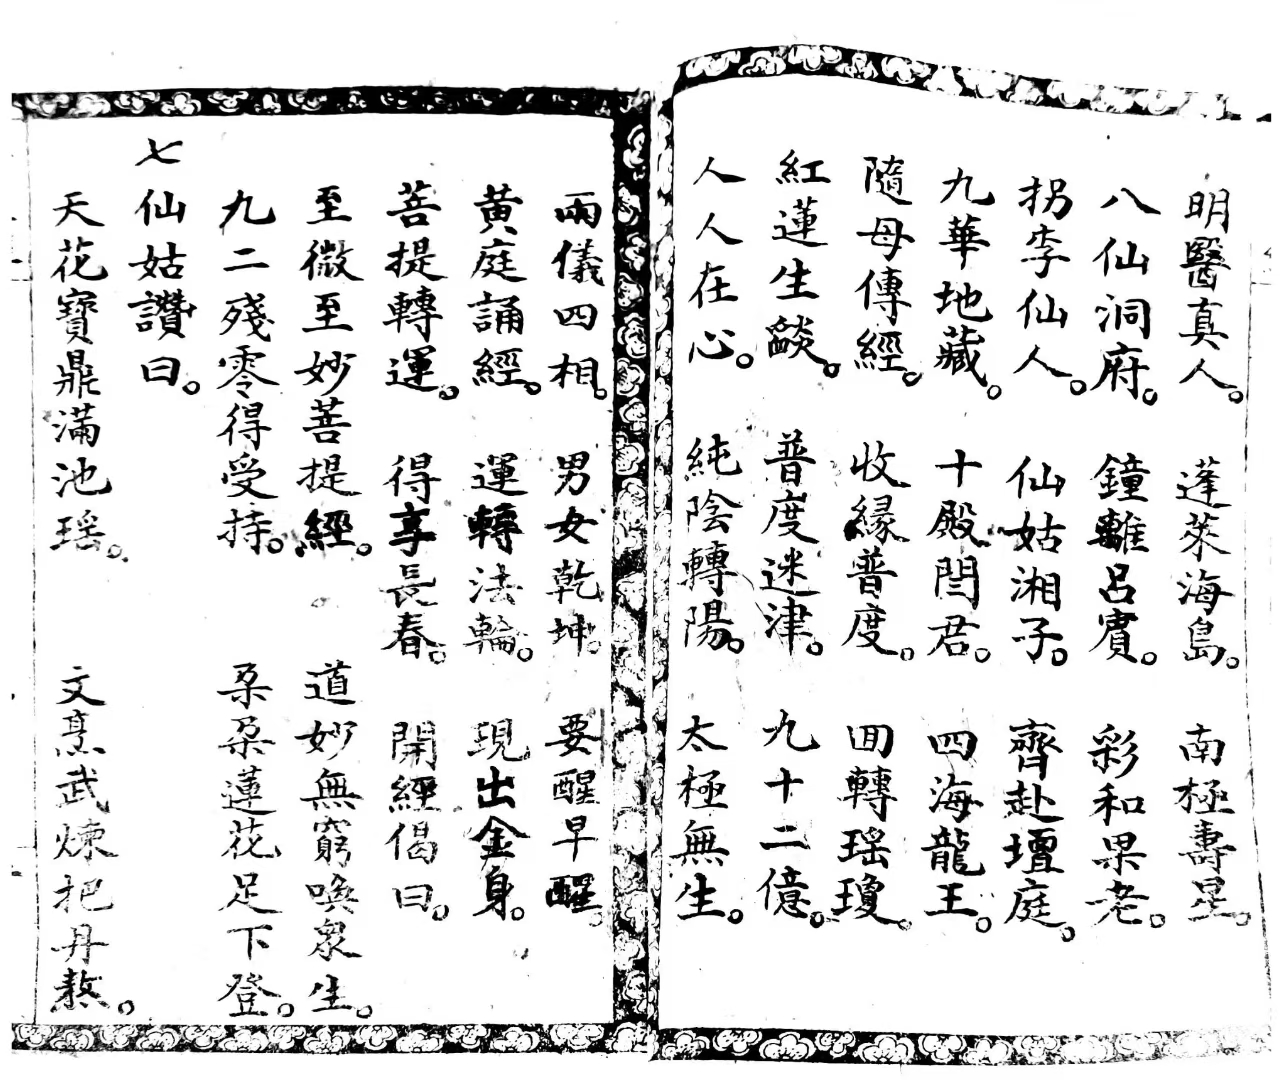 明醫真人。蓬萊海島。南極壽星。
八仙洞府。鐘離呂賓。彩和果老。
拐李仙人。仙姑湘子。齊赴壇庭。
九華地藏。十殿閆君。四海龍王。
隨母傳經。收緣普度。囬轉瑶瓊。
紅蓮生燄。普度迷津。九十二億。
人人在心。純陰轉陽。太極無生。
兩儀四相。男女乾坤。要醒早醒。
黃庭誦經。運轉法輪。現出金身。
菩提轉運。得享長春。開經偈曰。
至微至妙菩提經。道妙無窮喚衆生。
九二殘零得受持。朶朶蓮花足下登。
七仙姑讚曰。
天花寶鼎滿池瑶。文烹武煉把丹熬。